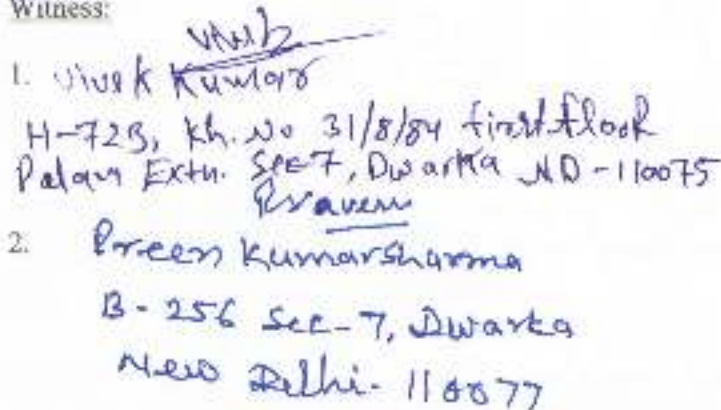 Witness:
1. Vivek Kumar
H-72B, Kh. No 31/8/84 first flook
Palam Extn. Sec-7, Dwarka ND-110075
Praveen
2. Preen Kumar Sharma
B-256 Sec-7, Dwarka
New Delhi-110077